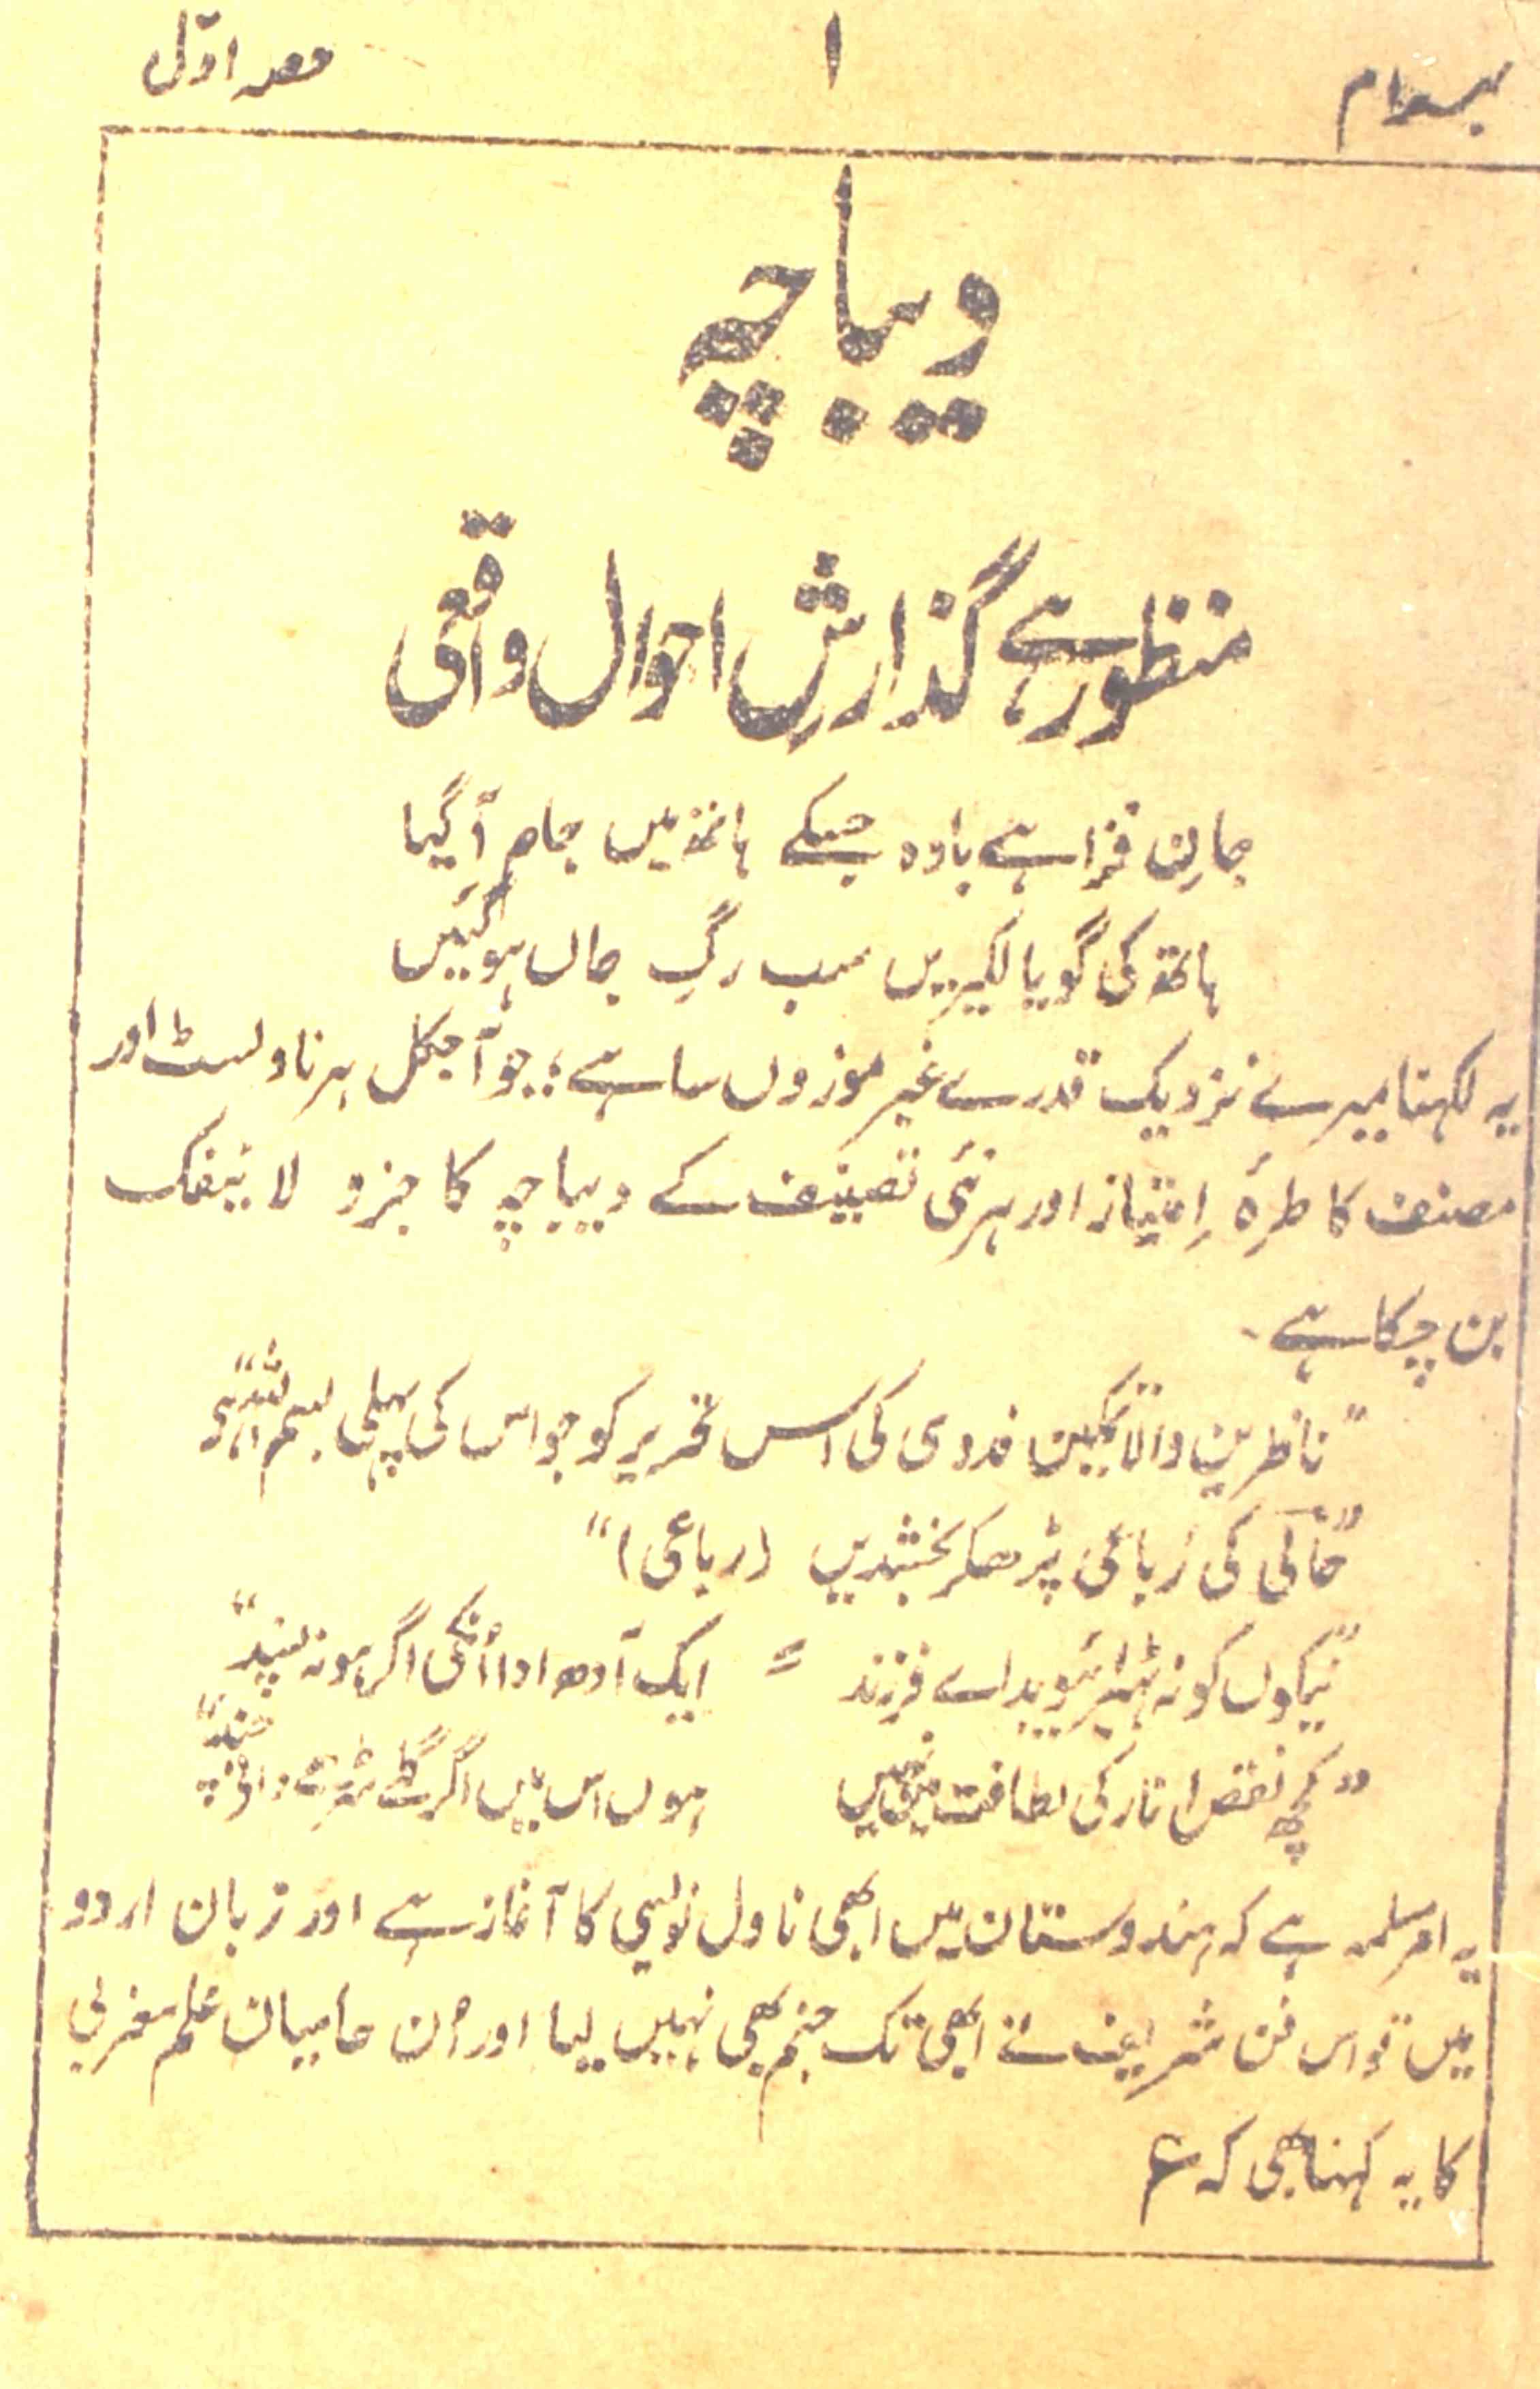 بہرام ۱ حصہ اوّل
دیباچہ
منظور ہے گذارشِ احوال واقعی
جاں فزا ہے بادہ جسکے ہاتھ میں جام آگیا
ہاتھ کی گویا لکیریں سب رگِ جاں ہوگئیں
یہ لکہنا میرے نزدیک قدرے غیر موزوں سا ہے؛ جو آجکل ہر ناولسٹ اور
مصنف کا طرۂ اِمتیاز اور ہر نئی تصنیف کے دیباچہ کا جزو لاینفک
بن چکا ہے۔
"ناظرین والا تمکین فدوی کی اس تحریر کو جو اس کی پہلی بسم اللہ ہی"
"حالی کی رُباعی پڑھکر بخشدیں (رباعی)"
"نیکوں کو نہ ٹہیرائیو بد اے فرزند = ایک آدھ ادا اُنکی اگر ہو نہ پسند"
"کچھ نقص انار کی لطافت میں نہیں ہوں اس میں اگر گلے سڑے دانے چند"
یہ امر مسلمہ ہے کہ ہندوستان میں ابھی ناول نویسی کا آغاز ہے اور زبان اردو
میں تو اس فن شریف نے ابھی تک جنم بھی نہیں لیا اور اُن حامیان علم مغربی
کا یہ کہنا بھی کہ ع